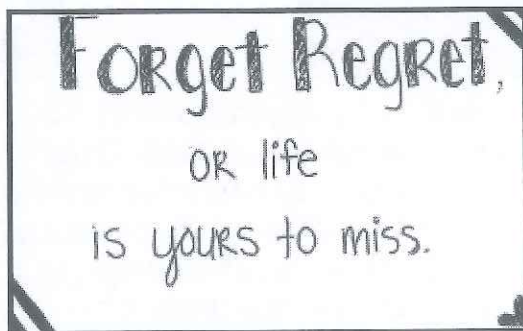 Forget Regret,
or life
is yours to miss.